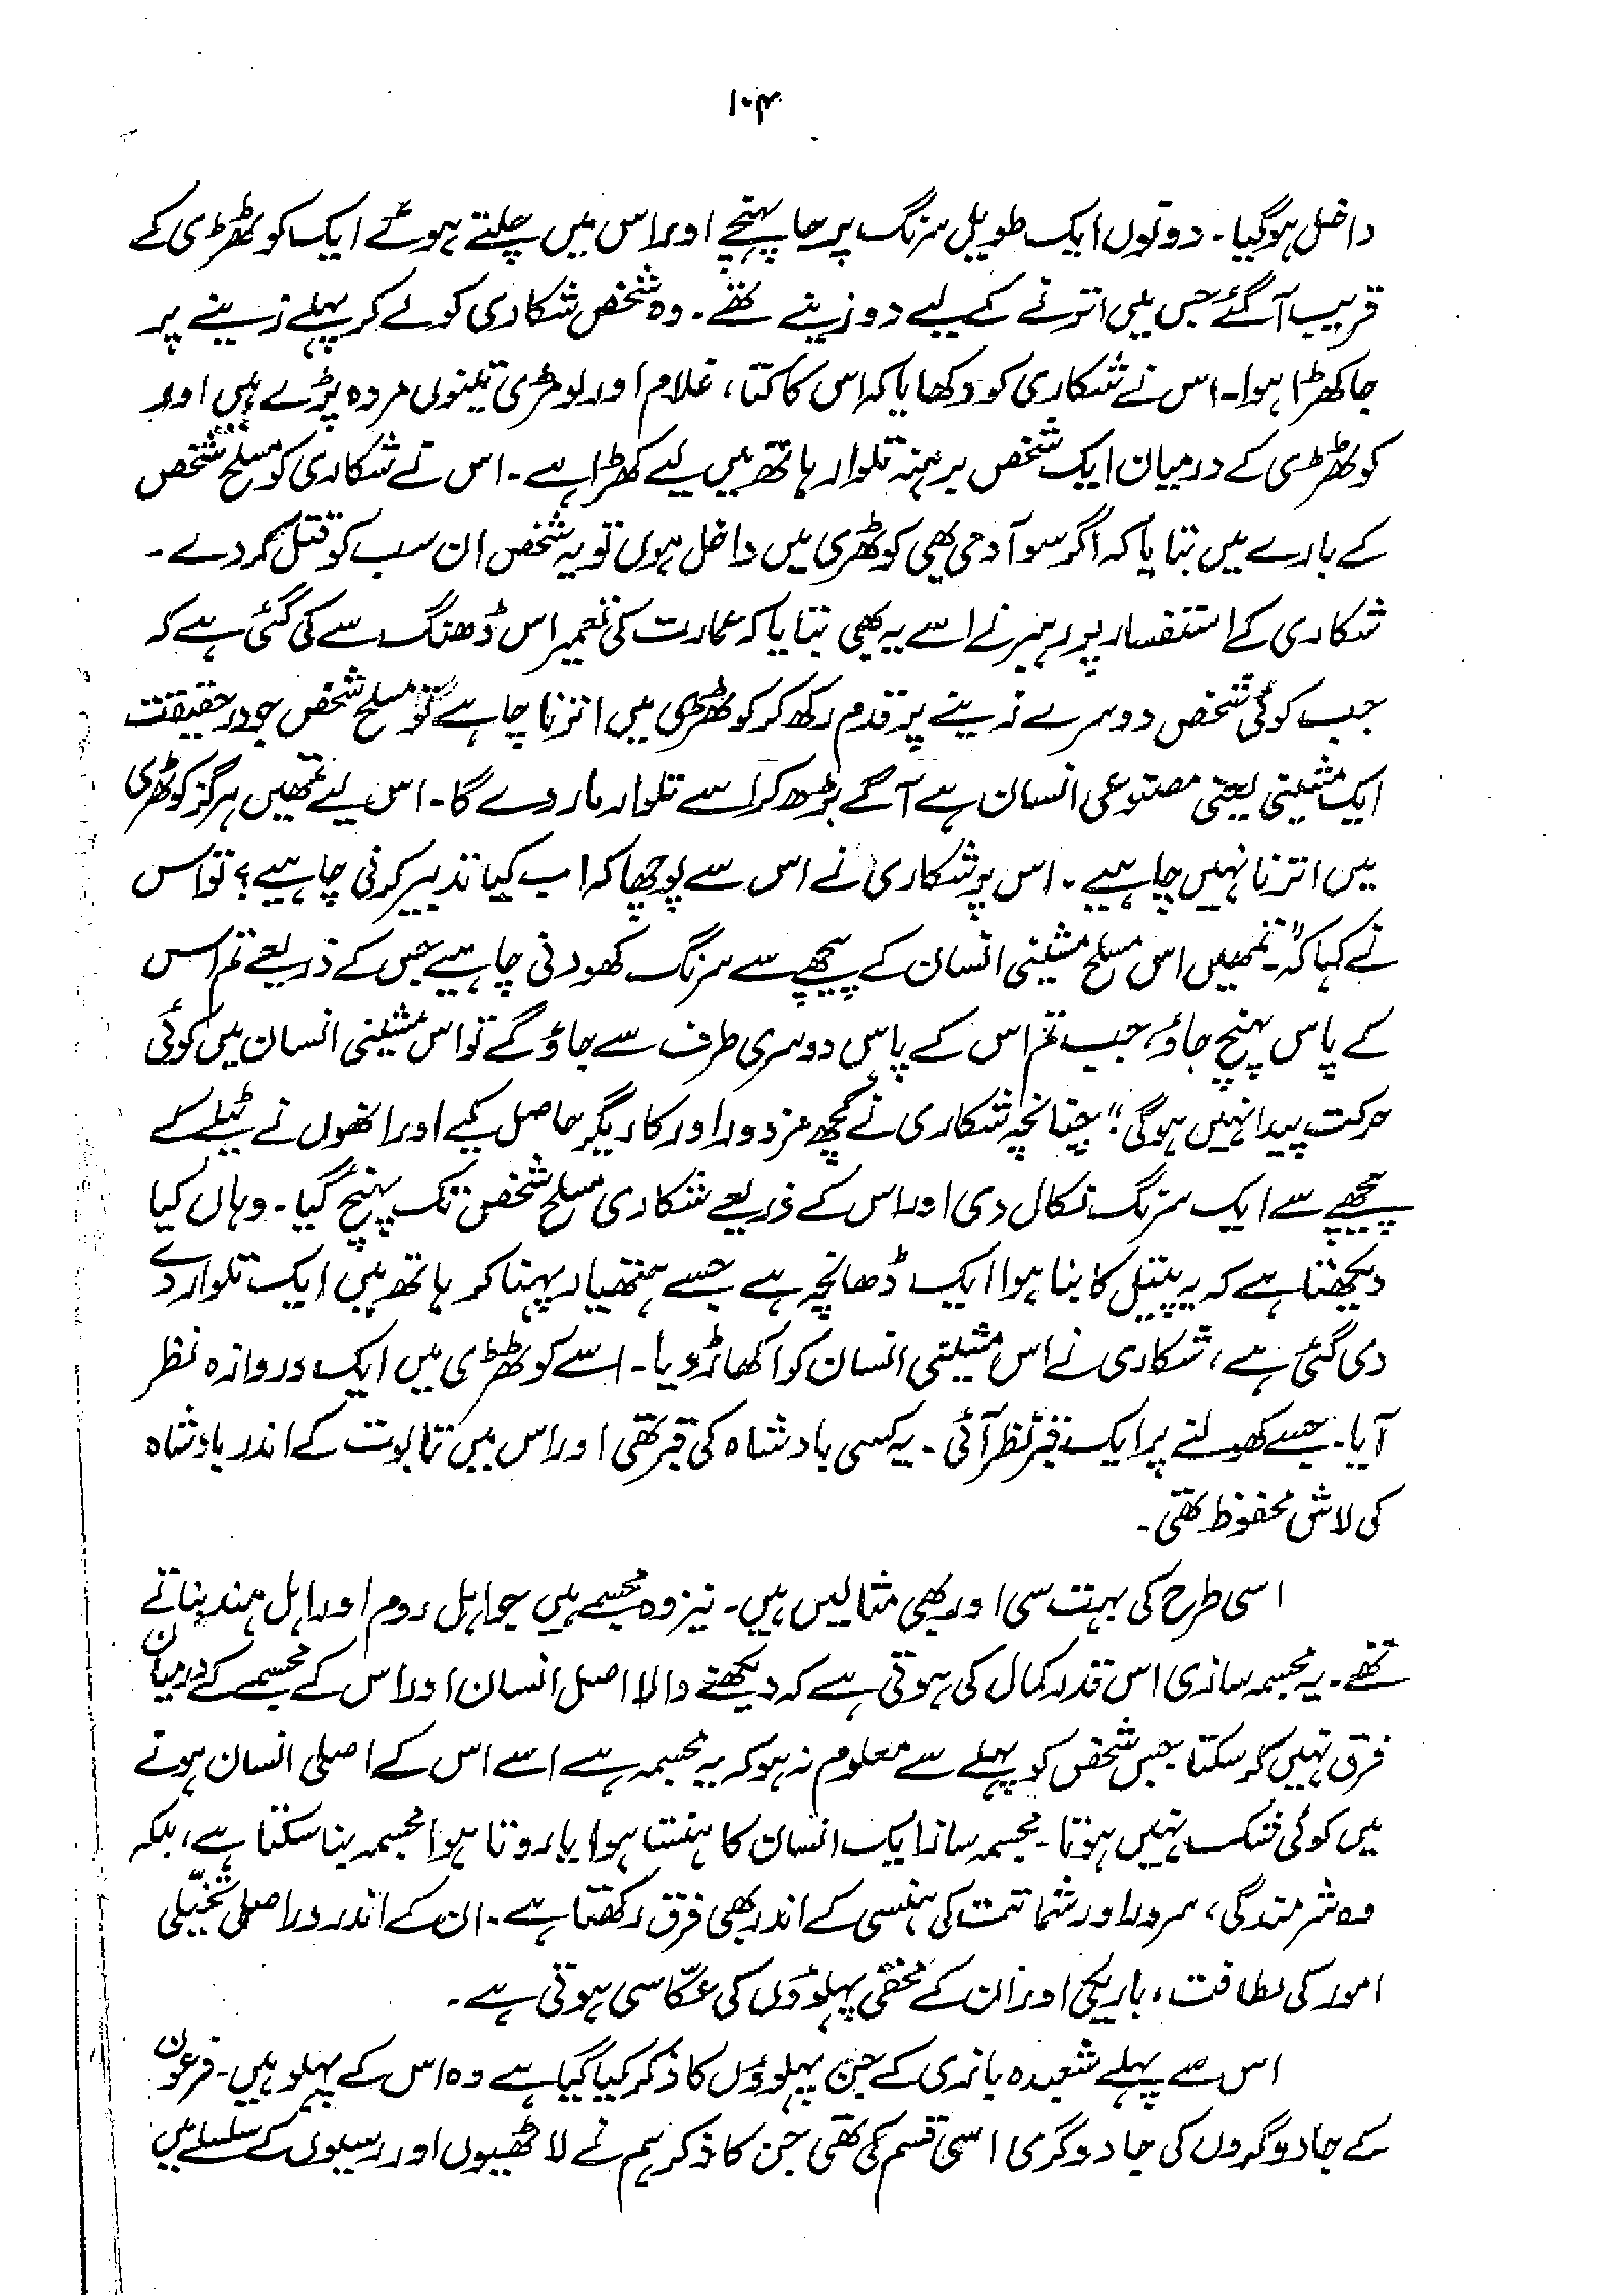 ۱۰۴
داخل ہوگیا۔ دونوں ایک طویل سرنگ پر جا پہنچے اور اس میں چلتے ہوئے ایک کوٹھڑی کے
قریب آگئے جس میں اترنے کے لیے دو زینے تھے۔ وہ شخص شکاری کو لے کر پہلے زینے پر
جا کھڑا ہوا۔ اس نے شکاری کو دکھایا کہ اس کا کتا، غلام اور لومڑی تینوں مردہ پڑے ہیں اور
کوٹھڑی کے درمیان ایک شخص برہنہ تلوار ہاتھ میں لیے کھڑا ہے۔ اس نے شکاری کو مسلح شخص
کے بارے میں بتایا کہ اگر سو آدمی بھی کوٹھری میں داخل ہوں تو یہ شخص ان سب کو قتل کردے۔
شکاری کے استفسار پر رہبر نے اسے یہ بھی بتایا کہ عمارت کی تعمیر اس ڈھنگ سے کی گئی ہے کہ
جب کوئی شخص دوسرے زینے پر قدم رکھ کر کوٹھڑی میں اترنا چاہے تو مسلح شخص جو در حقیقت
ایک مشینی یعنی مصنوعی انسان ہے آگے بڑھ کر اسے تلوار مار دے گا۔ اس لیے تمھیں ہرگز کوٹھڑی
میں اترنا نہیں چاہیے۔ اس پر شکاری نے اس سے پوچھا کہ اب کیا تدبیر کرنی چاہیے؟ تو اس
نے کہا کہ "تمھیں اس مسلح مشینی انسان کے پیچھے سے سرنگ کھودنی چاہیے جس کے ذریعے تم اس
کے پاس پہنچ جاؤ، جب تم اس کے پاس دوسری طرف سے جاؤ گے تو اس مشینی انسان میں کوئی
حرکت پیدا نہیں ہوگی" چنانچہ شکاری نے کچھ مزدور اور کاریگر حاصل کیے اور انھوں نے ٹیلے کے
پیچھے سے ایک سرنگ نکال دی اور اس کے ذریعے شکاری مسلح شخص تک پہنچ گیا۔ وہاں کیا
دیکھتا ہے کہ یہ پیتل کا بنا ہوا ایک ڈھانچہ ہے جسے ہتھیار پہنا کر ہاتھ میں ایک تلوار دے
دی گئی ہے، شکاری نے اس مشینی انسان کو اکھاڑ دیا۔ اسے کوٹھڑی میں ایک دروازہ نظر
آیا۔ جسے کھولنے پر ایک قبر نظر آئی۔ یہ کسی بادشاہ کی قبر تھی اور اس میں تابوت کے اندر بادشاہ
کی لاش محفوظ تھی۔
اسی طرح کی بہت سی اور بھی مثالیں ہیں۔ نیز وہ مجسمے ہیں جو اہل روم اور اہل ہند بناتے
تھے۔ یہ مجسمہ سازی اس قدر کمال کی ہوتی ہے کہ دیکھنے والا اصل انسان اور اس کے مجسمے کے درمیان
فرق نہیں کر سکتا جس شخص کو پہلے سے معلوم نہ ہو کہ یہ مجسمہ ہے اسے اس کے اصلی انسان ہونے
میں کوئی شک نہیں ہوتا۔ مجسمہ ساز ایک انسان کا ہنستا ہوا یا روتا ہوا مجسمہ بنا سکتا ہے، بلکہ
وہ شرمندگی، سرور اور شماتت کی ہنسی کے اندر بھی فرق رکھتا ہے۔ ان کے اندر دراصل تخیّلی
امور کی لطافت، باریکی اور ان کے مخفی پہلوؤں کی عکّاسی ہوتی ہے۔
اس سے پہلے شعبدہ بازی کے جن پہلوؤں کا ذکر کیا گیا ہے وہ اس کے پہلو ہیں۔ فرعون
کے جادوگروں کی جادوگری اسی قسم کی تھی جن کا ذکر ہم نے لاٹھیوں اور رسیوں کے سلسلے میں